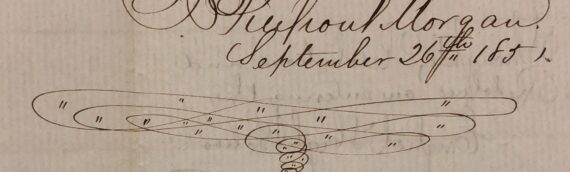 J. Pierpont Morgan.
September 26th 1851.